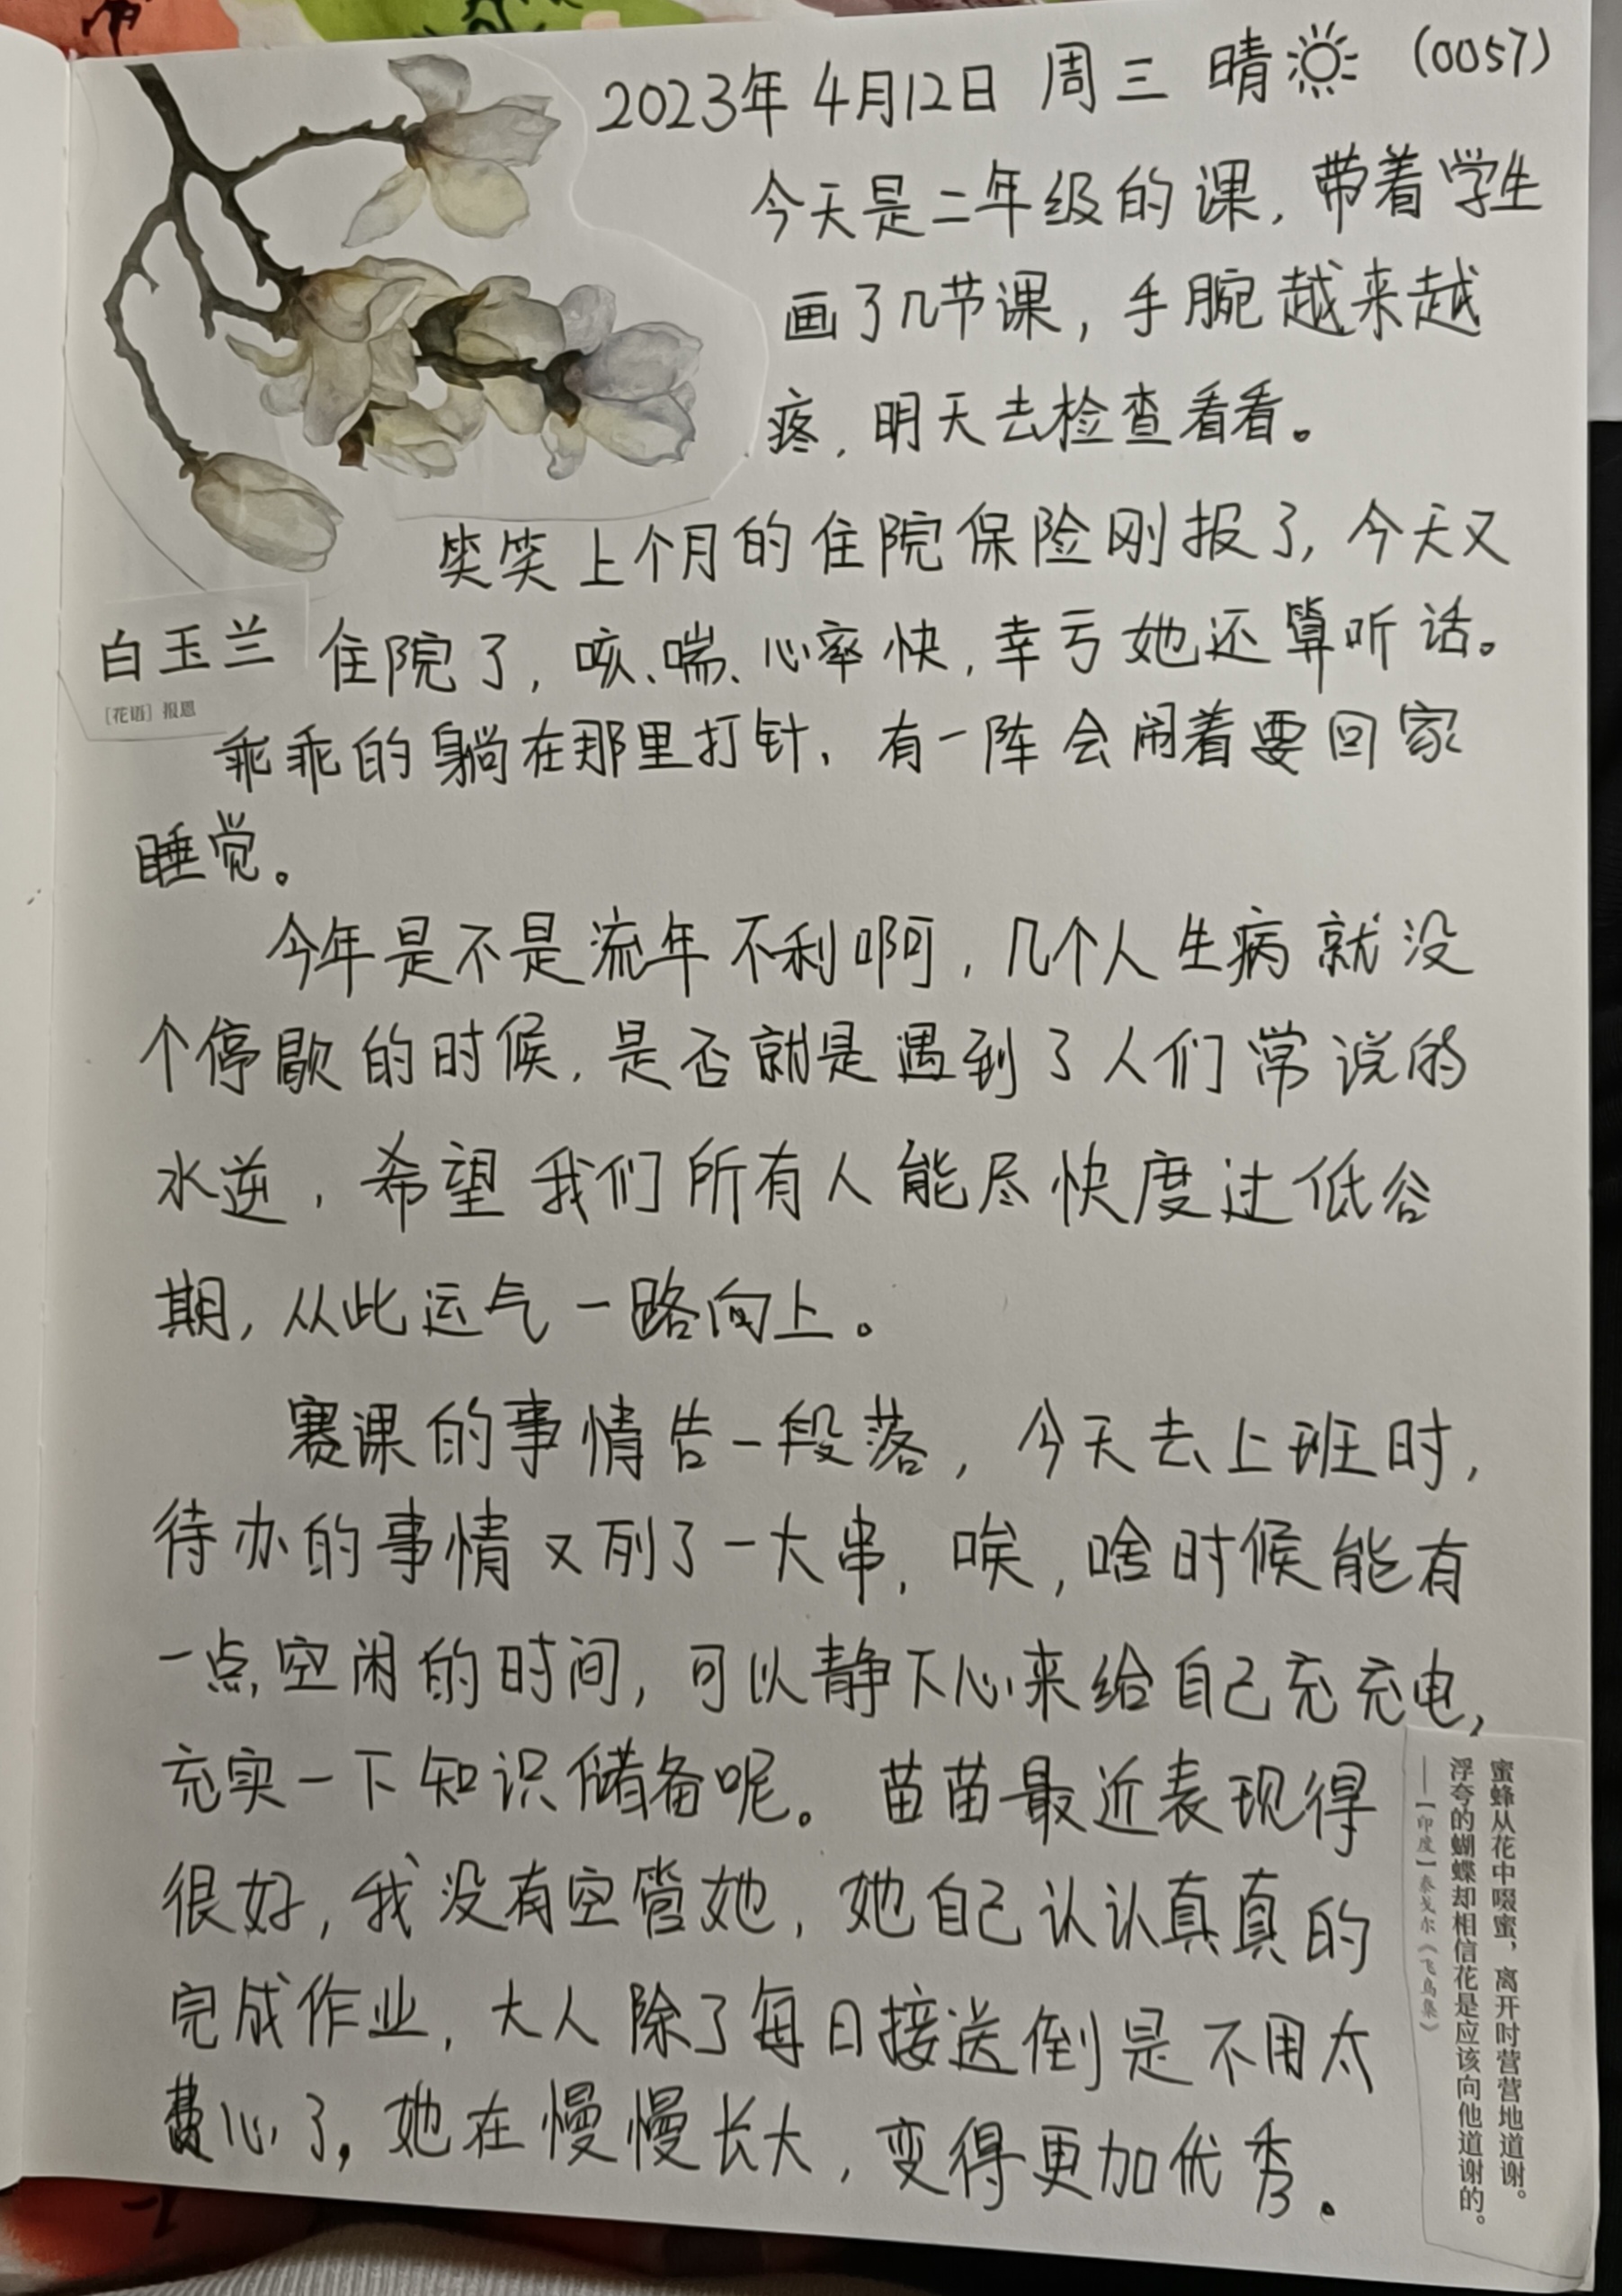 2023年 4月12日 周三 晴 (0057)
今天是二年级的课，带着学生
画了几节课，手腕越来越
疼，明天去检查看看。
笑笑上个月的住院保险刚报了，今天又
白玉兰
[花语] 报恩
住院了，咳、喘、心率快，幸亏她还算听话。
乖乖的躺在那里打针，有一阵会闹着要回家
睡觉。
今年是不是流年不利啊，几个人生病就没
个停歇的时候，是否就是遇到了人们常说的
水逆，希望我们所有人能尽快度过低谷
期，从此运气一路向上。
赛课的事情告一段落，今天去上班时，
待办的事情又列了一大串，唉，啥时候能有
一点空闲的时间，可以静下心来给自己充充电，
充实一下知识储备呢。苗苗最近表现得
很好，我没有空管她，她自己认认真真的
完成作业，大人除了每日接送倒是不用太
费心了，她在慢慢长大，变得更加优秀。
蜜蜂从花中啜蜜，离开时营营地道谢。
浮夸的蝴蝶却相信花是应该向他道谢的。
——［印度］泰戈尔《飞鸟集》